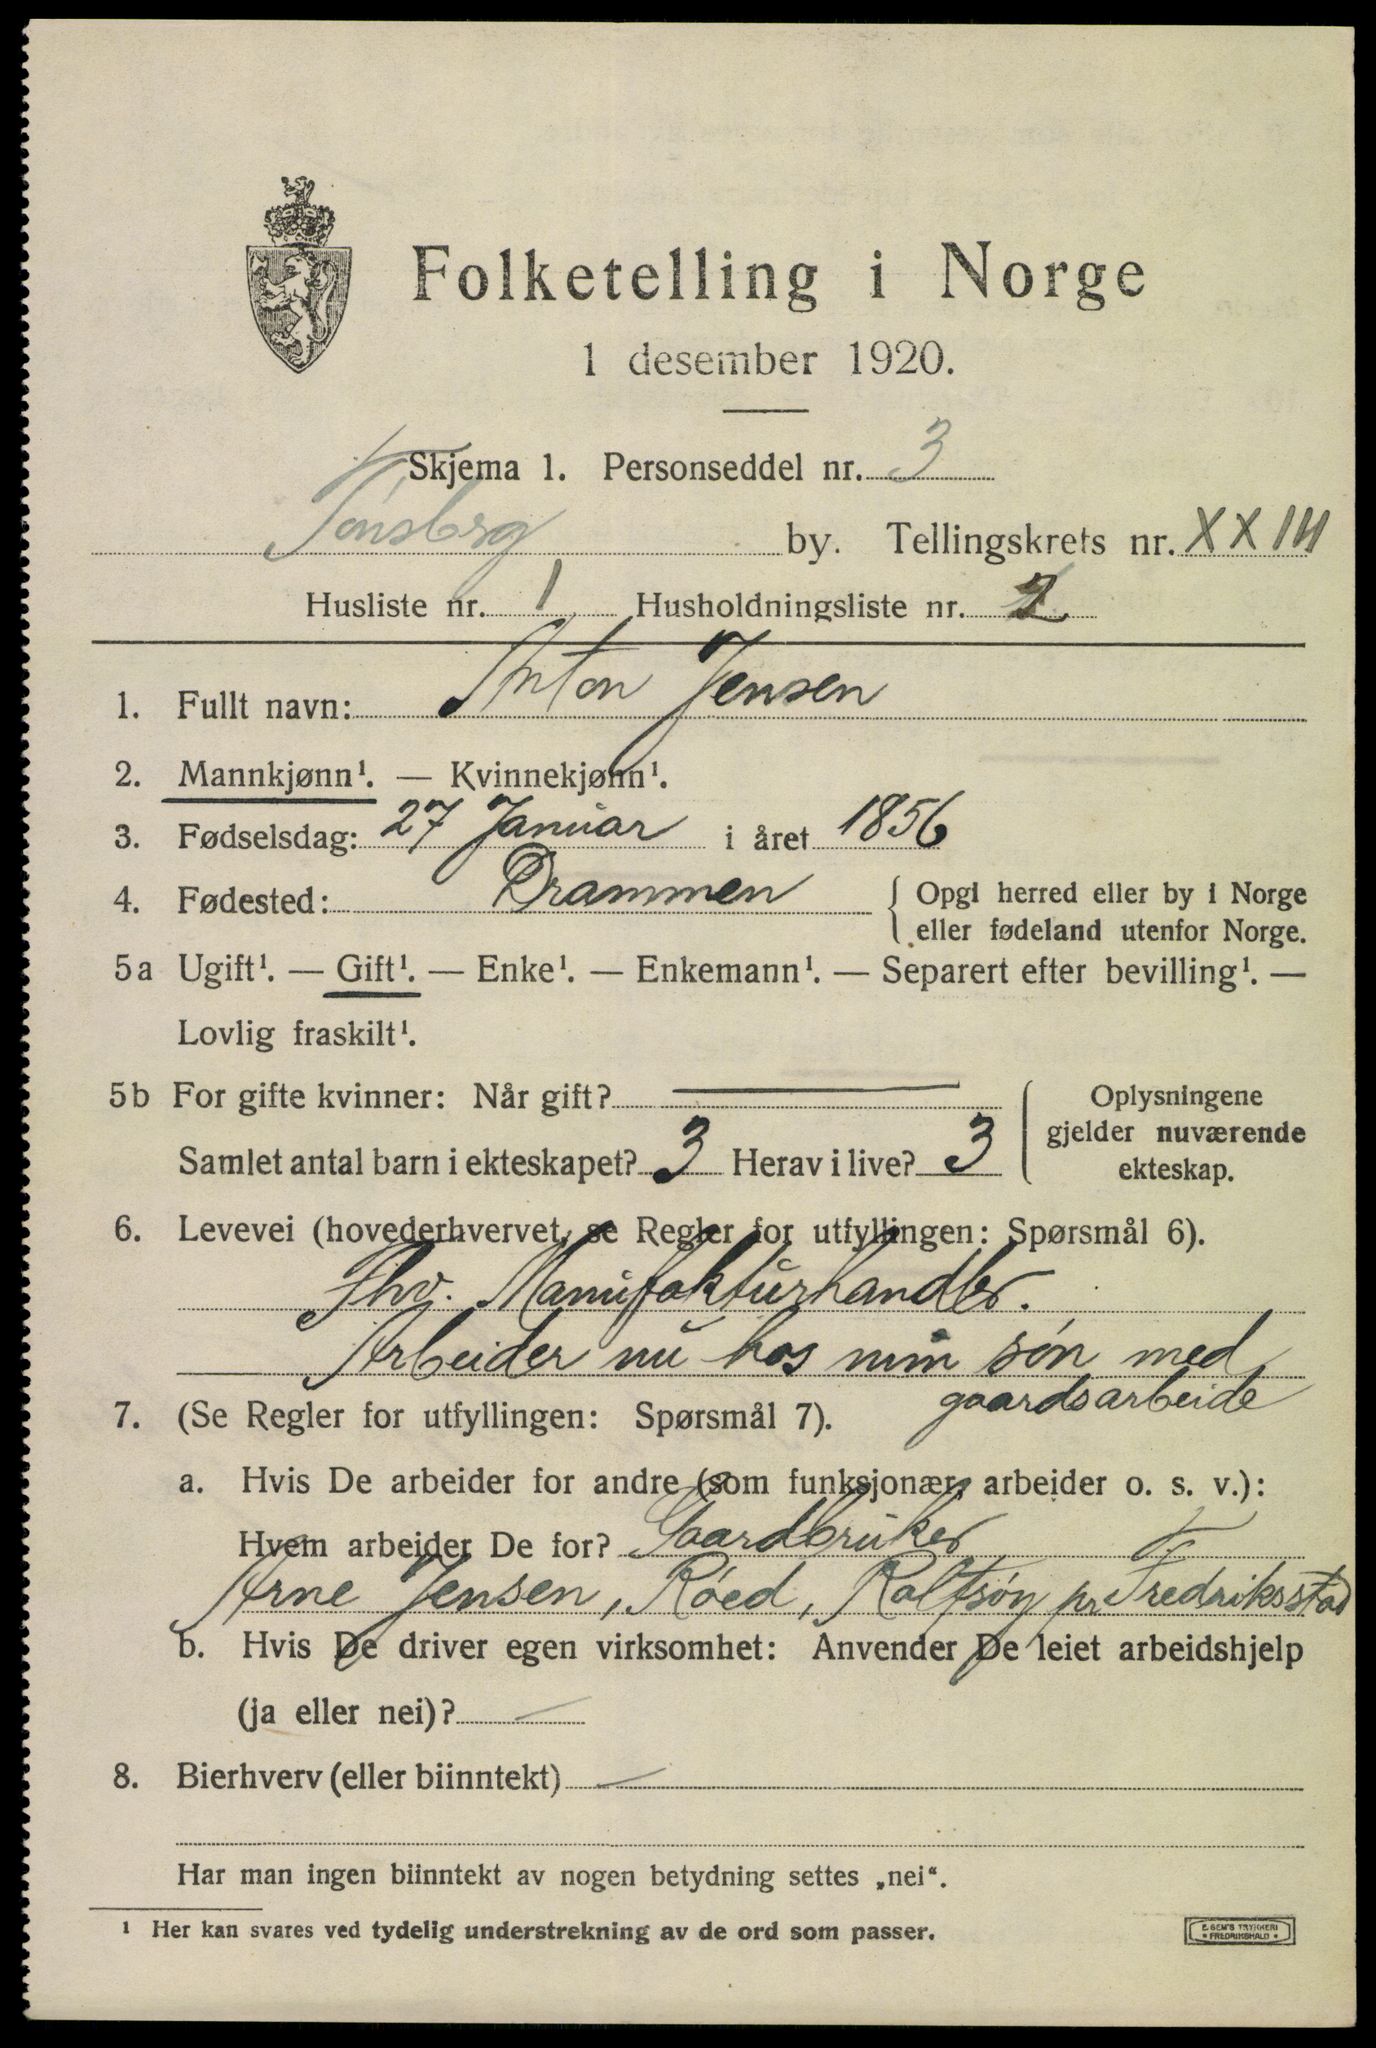 Folketelling i Norge
1 desember 1920.
Skjema 1. Personseddel nr. 3
Tønsberg by. Tellingskrets nr. XXIII
Husliste nr. 1 Husholdningsliste nr. 2
1. Fullt navn: Anton Jensen
2. Mannkjønn¹. — Kvinnekjønn¹.
3. Fødselsdag: 27 Januar i året 1856
4. Fødested: Drammen { Opgi herred eller by i Norge
eller fødeland utenfor Norge.
5a Ugift¹. — Gift¹. — Enke¹. — Enkemann¹. — Separert efter bevilling¹. —
Lovlig fraskilt¹.
5b For gifte kvinner: Når gift? —
Samlet antal barn i ekteskapet? 3 Herav i live? 3
Oplysningene
gjelder nuværende
ekteskap.
6. Levevei (hovederhvervet, se Regler for utfyllingen: Spørsmål 6).
Fhv. Manufakturhandler.
Arbeider nu hos min søn med
gaardsarbeide
7. (Se Regler for utfyllingen: Spørsmål 7).
a. Hvis De arbeider for andre (som funksjonær, arbeider o. s. v.):
Hvem arbeider De for? Gaardbruker
Arne Jensen, Röed, Roltsöy pr Fredriksstad
b. Hvis De driver egen virksomhet: Anvender De leiet arbeidshjelp
(ja eller nei)? —
8. Bierhverv (eller biinntekt) —
Har man ingen biinntekt av nogen betydning settes „nei“.
¹ Her kan svares ved tydelig understrekning av de ord som passer.
E. SEM'S TRYKKERI
• FREDRIKSHALD •